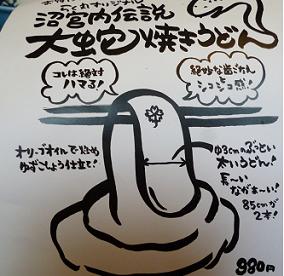 沼宮内伝説
大蛇焼きうどん
コレは絶対
ハマる!
絶妙な歯ごたえ
シコシコ感!
オリーブオイルで炒め
ゆずこしょう仕立て!
ゆ3cmのぶっとい
太いうどん!
長〜い
ながぁ〜い!
85cmが
2本!
980円